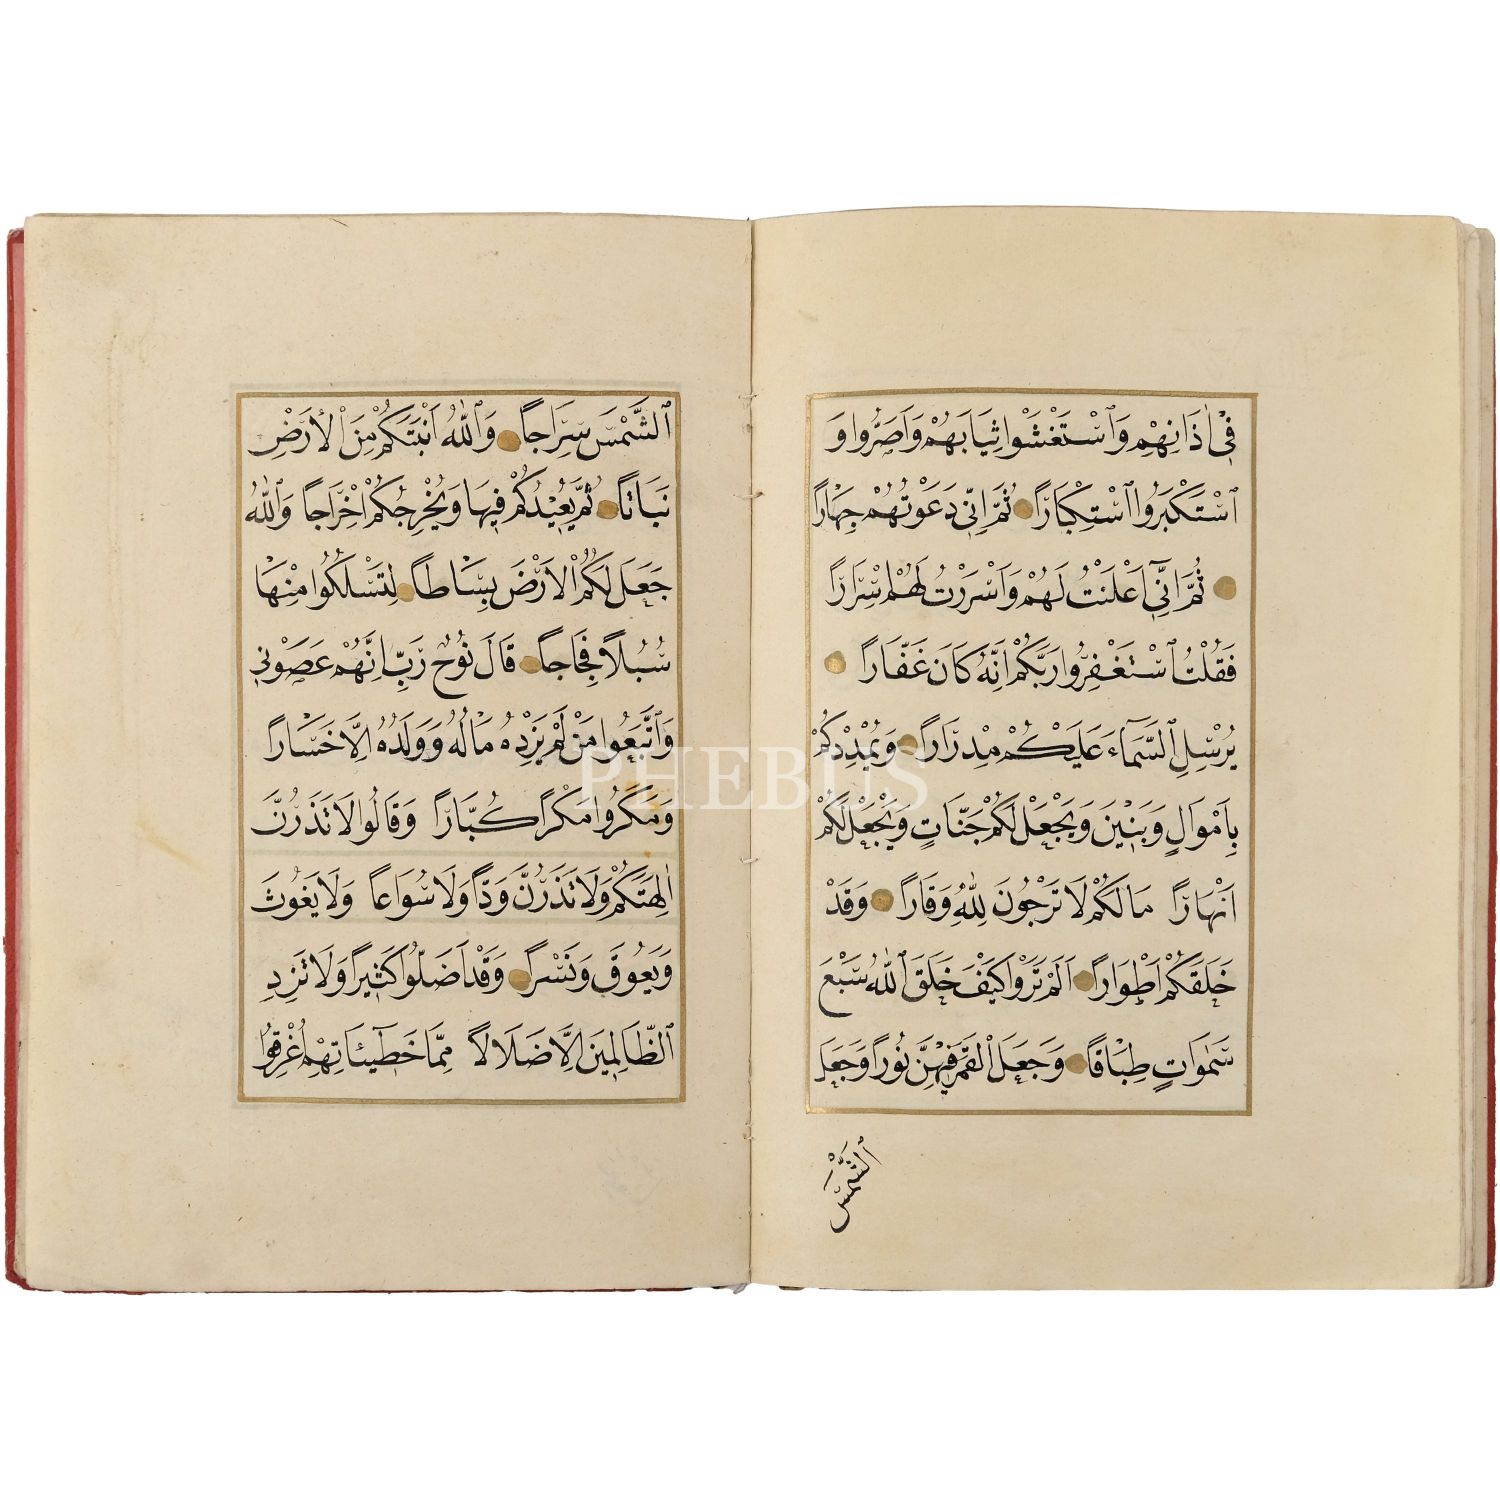 فِي اٰذَانِهِمْ وَاسْتَغْشَوْا ثِيَابَهُمْ وَاَصَرُّوا وَ
اسْتَكْبَرُوا اسْتِكْبَارًا ثُمَّ اِنِّي دَعَوْتُهُمْ جِهَارًا
ثُمَّ اِنِّٓي اَعْلَنْتُ لَهُمْ وَاَسْرَرْتُ لَهُمْ اِسْرَارًا
فَقُلْتُ اسْتَغْفِرُوا رَبَّكُمْ اِنَّهُ كَانَ غَفَّارًا
يُرْسِلِ السَّمَٓاءَ عَلَيْكُمْ مِدْرَارًا وَيُمْدِدْكُمْ
بِاَمْوَالٍ وَبَنِينَ وَيَجْعَلْ لَكُمْ جَنَّاتٍ وَيَجْعَلْ لَكُمْ
اَنْهَارًا مَالَكُمْ لَا تَرْجُونَ لِلّٰهِ وَقَارًا وَقَدْ
خَلَقَكُمْ اَطْوَارًا اَلَمْ تَرَوْا كَيْفَ خَلَقَ اللّٰهُ سَبْعَ
سَمٰوَاتٍ طِبَاقًا وَجَعَلَ الْقَمَرَ فِيهِنَّ نُورًا وَجَعَلَ
الشَّمْسَ
الشَّمْسَ سِرَاجًا وَاللّٰهُ اَنْبَتَكُمْ مِنَ الْاَرْضِ
نَبَاتًا ثُمَّ يُعِيدُكُمْ فِيهَا وَيُخْرِجُكُمْ اِخْرَاجًا وَاللّٰهُ
جَعَلَ لَكُمُ الْاَرْضَ بِسَاطًا لِتَسْلُكُوا مِنْهَا
سُبُلًا فِجَاجًا قَالَ نُوحٌ رَبِّ اِنَّهُمْ عَصَوْنِي
وَاتَّبَعُوا مَنْ لَمْ يَزِدْهُ مَالُهُ وَوَلَدُهُ اِلَّا خَسَارًا
وَمَكَرُوا مَكْرًا كُبَّارًا وَقَالُوا لَا تَذَرُنَّ
اٰلِهَتَكُمْ وَلَا تَذَرُنَّ وَدًّا وَلَا سُوَاعًا وَلَا يَغُوثَ
وَيَعُوقَ وَنَسْرًا وَقَدْ اَضَلُّوا كَثِيرًا وَلَا تَزِدِ
الظَّالِمِينَ اِلَّا ضَلَالًا مِمَّا خَطِٓيئَاتِهِمْ اُغْرِقُوا
PHEBUS